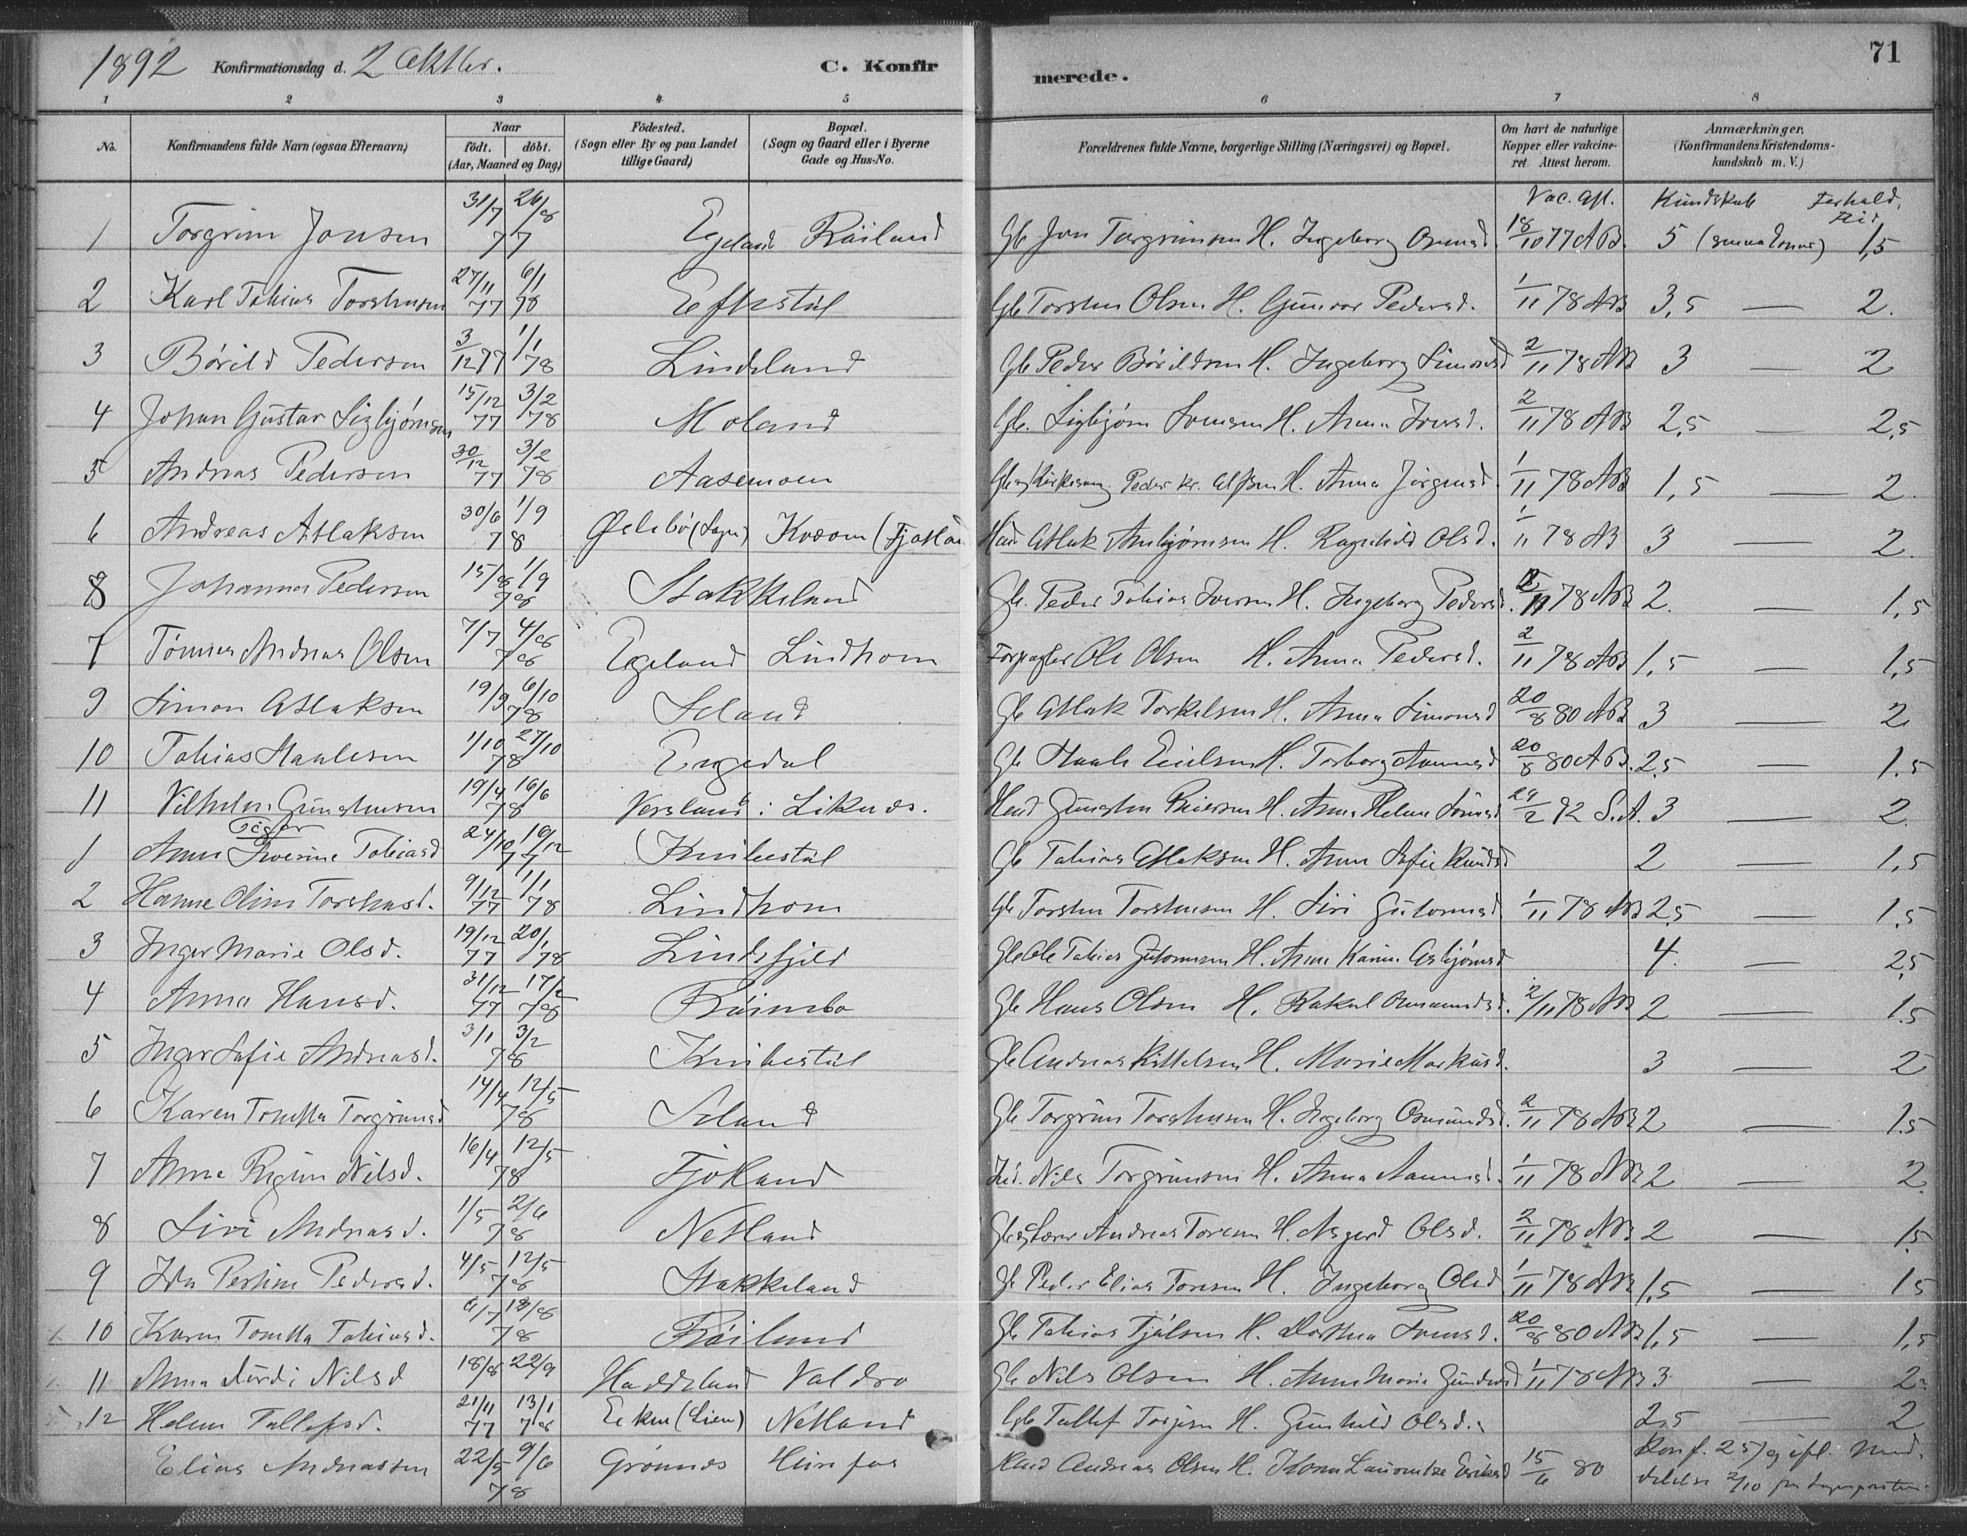 1892 Konfirmationsdag d. 2 Oktbr. C. Konfirmerede. 71
1 2 3 4 5 6 7 8
No. Konfirmandens fulde Navn (ogsaa Efternavn) Naar født. døbt. (Aar, Maaned og Dag) Fødested. (Sogn eller By og paa Landet tillige Gaard) Bopæl. (Sogn og Gaard eller i Byerne Gade og Hus-No.) Forældrenes fulde Navne, borgerlige Stilling (Næringsvei) og Bopæl. Om havt de naturlige Kopper eller vakcineret. Attest herom. Anmærkninger. (Konfirmandens Kristendomskundskab m. V.)
Vac. Att. Kundskab Forhold. Flid.
1 Torgrim Jonsen 31/7 26/8 77 Egeland Røiland Gb Jon Torgrimsen H. Ingeborg Osmd. 18/10 77 AB. 5 1,5
2 Karl Tobias Torstensen 27/11 77 6/1 78 Eftestøl Gb Torsten Olsen H. Gunvor Pedersd. 1/11 78 AB 3,5 — 2.
3 Børild Pedersen 3/12 77 1/1 78 Lindeland Gb Peder Børildsen H. Ingeborg Simonsd 2/11 78 AB 3 — 2
4 Johan Gustav Sigbjørnsen 15/12 77 3/2 78 Moland Gb. Sigbjørn Svensen H. Anna Iversd. 2/11 78 AB 2,5 — 2,5
5 Andreas Pedersen 30/12 77 3/2 78 Aasemoen Gb og Kirkesang. Peder Kr. H. Anna Jørgensd. 1/11 78 AB 1,5 — 2.
6 Andreas Atlaksen 30/6 1/9 78 Øslebø (Sogn) Kvæven (Fjotland Atlak Anbjørnsen H. Ragnhild Olsd. 1/11 78 AB 3 — 2.
8 Johannes Pedersen 15/8 1/9 78 Stakkeland Gb. Peder Tobias Iversen H. Ingeborg Pedersd. 78 AB 2. — 1,5
7 Tønnes Andreas Olsen 7/7 4/8 78 Egeland Lindhom Forpagter Ole Olsen H. Anna Pedersd. 2/11 78 AB 1,5 — 1,5
9 Simon Atlaksen 19/9 6/10 78 Seland Gb Atlak Torkelsen H. Anna Simonsd 20/8 80 AB 3 — 2
10 Tobias Staalesen 1/10 27/10 78 Engedal Gb Staale Emilsen H. Torborg Aanensd 20/8 80 AB. 2,5 — 1.5
11 Vilhelm Gunstensen 19/4 16/6 78 i Liknes. Gunsten H. Anna Helene 24/2 92 S.A. 3 — 2
1 Anne Severine Tobiasd 24/10 16/12 77 Knibestøl Gb Tobias Atlaksen H. Anne Sofie Knudsd 2 — 1,5
2 Hanne Oline Torstensd. 9/12 77 1/1 78 Lindhom Gb Torsten Torstensen H. Siri Gutormsd 1/11 78 AB 2,5 — 1.5
3 Inger Marie Olsd. 19/12 77 20/1 78 Lindefjeld Gb Ole Tobias Gutormsen H. Anne Karine Asbjørnsd 4. — 2,5
4 Anna Hansd. 31/12 77 17/2 78 Røimbo Gb Hans Olsen H. Rakel Osmundsd. 2/11 78 AB 2 — 1.5
5 Inger Sofie Andreasd. 3/1 3/2 78 Knibestøl Gb Andreas Kittelsen H. Marie Markusd. 3 — 2
6 Karen Tomette Torgrimsd 14/4 12/5 78 Seland Gb Torgrim Torstensen H. Ingeborg Osmundsd. 2/11 78 AB 2 — 1.5
7 Anne Regine Nilsd. 16/4 12/5 78 Fjotland Ind. Nils Torgrimsen H. Anna Aanensd. 1/11 78 AB 2 — 2
8 Siri Andreasd. 1/5 2/6 78 Netland Gb og Lærer Andreas Toresen H. Asgerd Olsd. 2/11 78 AB 2 — 1.5
9 Ida Pertine Pedersd. 4/5 12/5 78 Stakkeland Gb Peder Elias Toresen H. Ingeborg Olsd 1/11 78 AB 1,5 — 1,5
10 Karen Tomette Tobiasd. 6/7 18/8 78 Røiland Gb Tobias Fjølsen H. Dorthea Svensd. 20/8 80 AB 1,5 — 1,5
11 Anna Nilsd 18/8 22/9 Haddeland Valdro Gb Nils Olsen H. Anne Marie Gundersd 1/11 78 AB 3 — 2
12 Helene Tallefsd. 21/11 77 13/1 78 Eeken (Lien) Netland Gb Tallef Torjesen H. Gunhild Olsd. 2,5 — 2
Elias Andreassen 22/5 9/6 78 Grønnes Andreas Olsen H. Karen Lauentze Eriksd 15/6 80 Konf. 25/9 ifl. Meddelelse 2/10 fra Sognepresten.